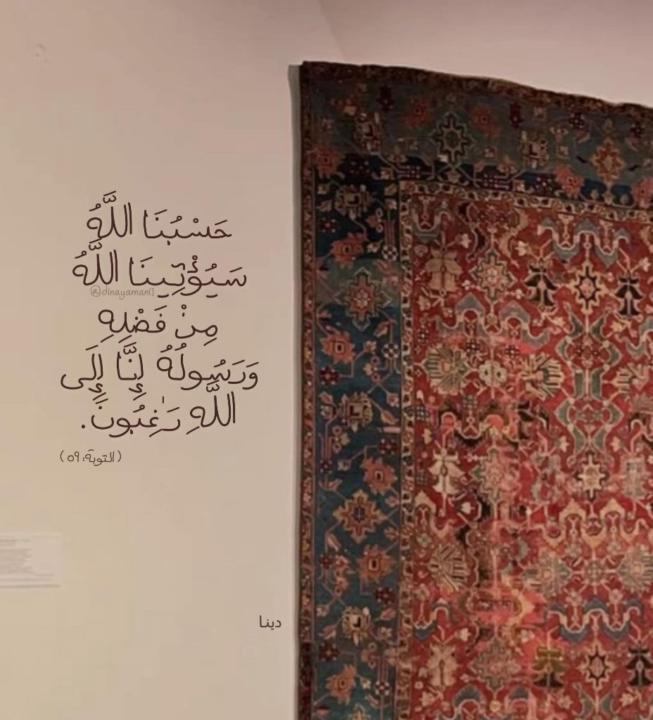 حَسْبُنَا اللَّهُ
سَيُؤْتِينَا اللَّهُ
@dinayamani1
مِنْ فَضْلِهِ
وَرَسُولُهُ إِنَّا إِلَى
اللَّهِ رَٰغِبُونَ.
(التوبة، ٥٩)
دينا